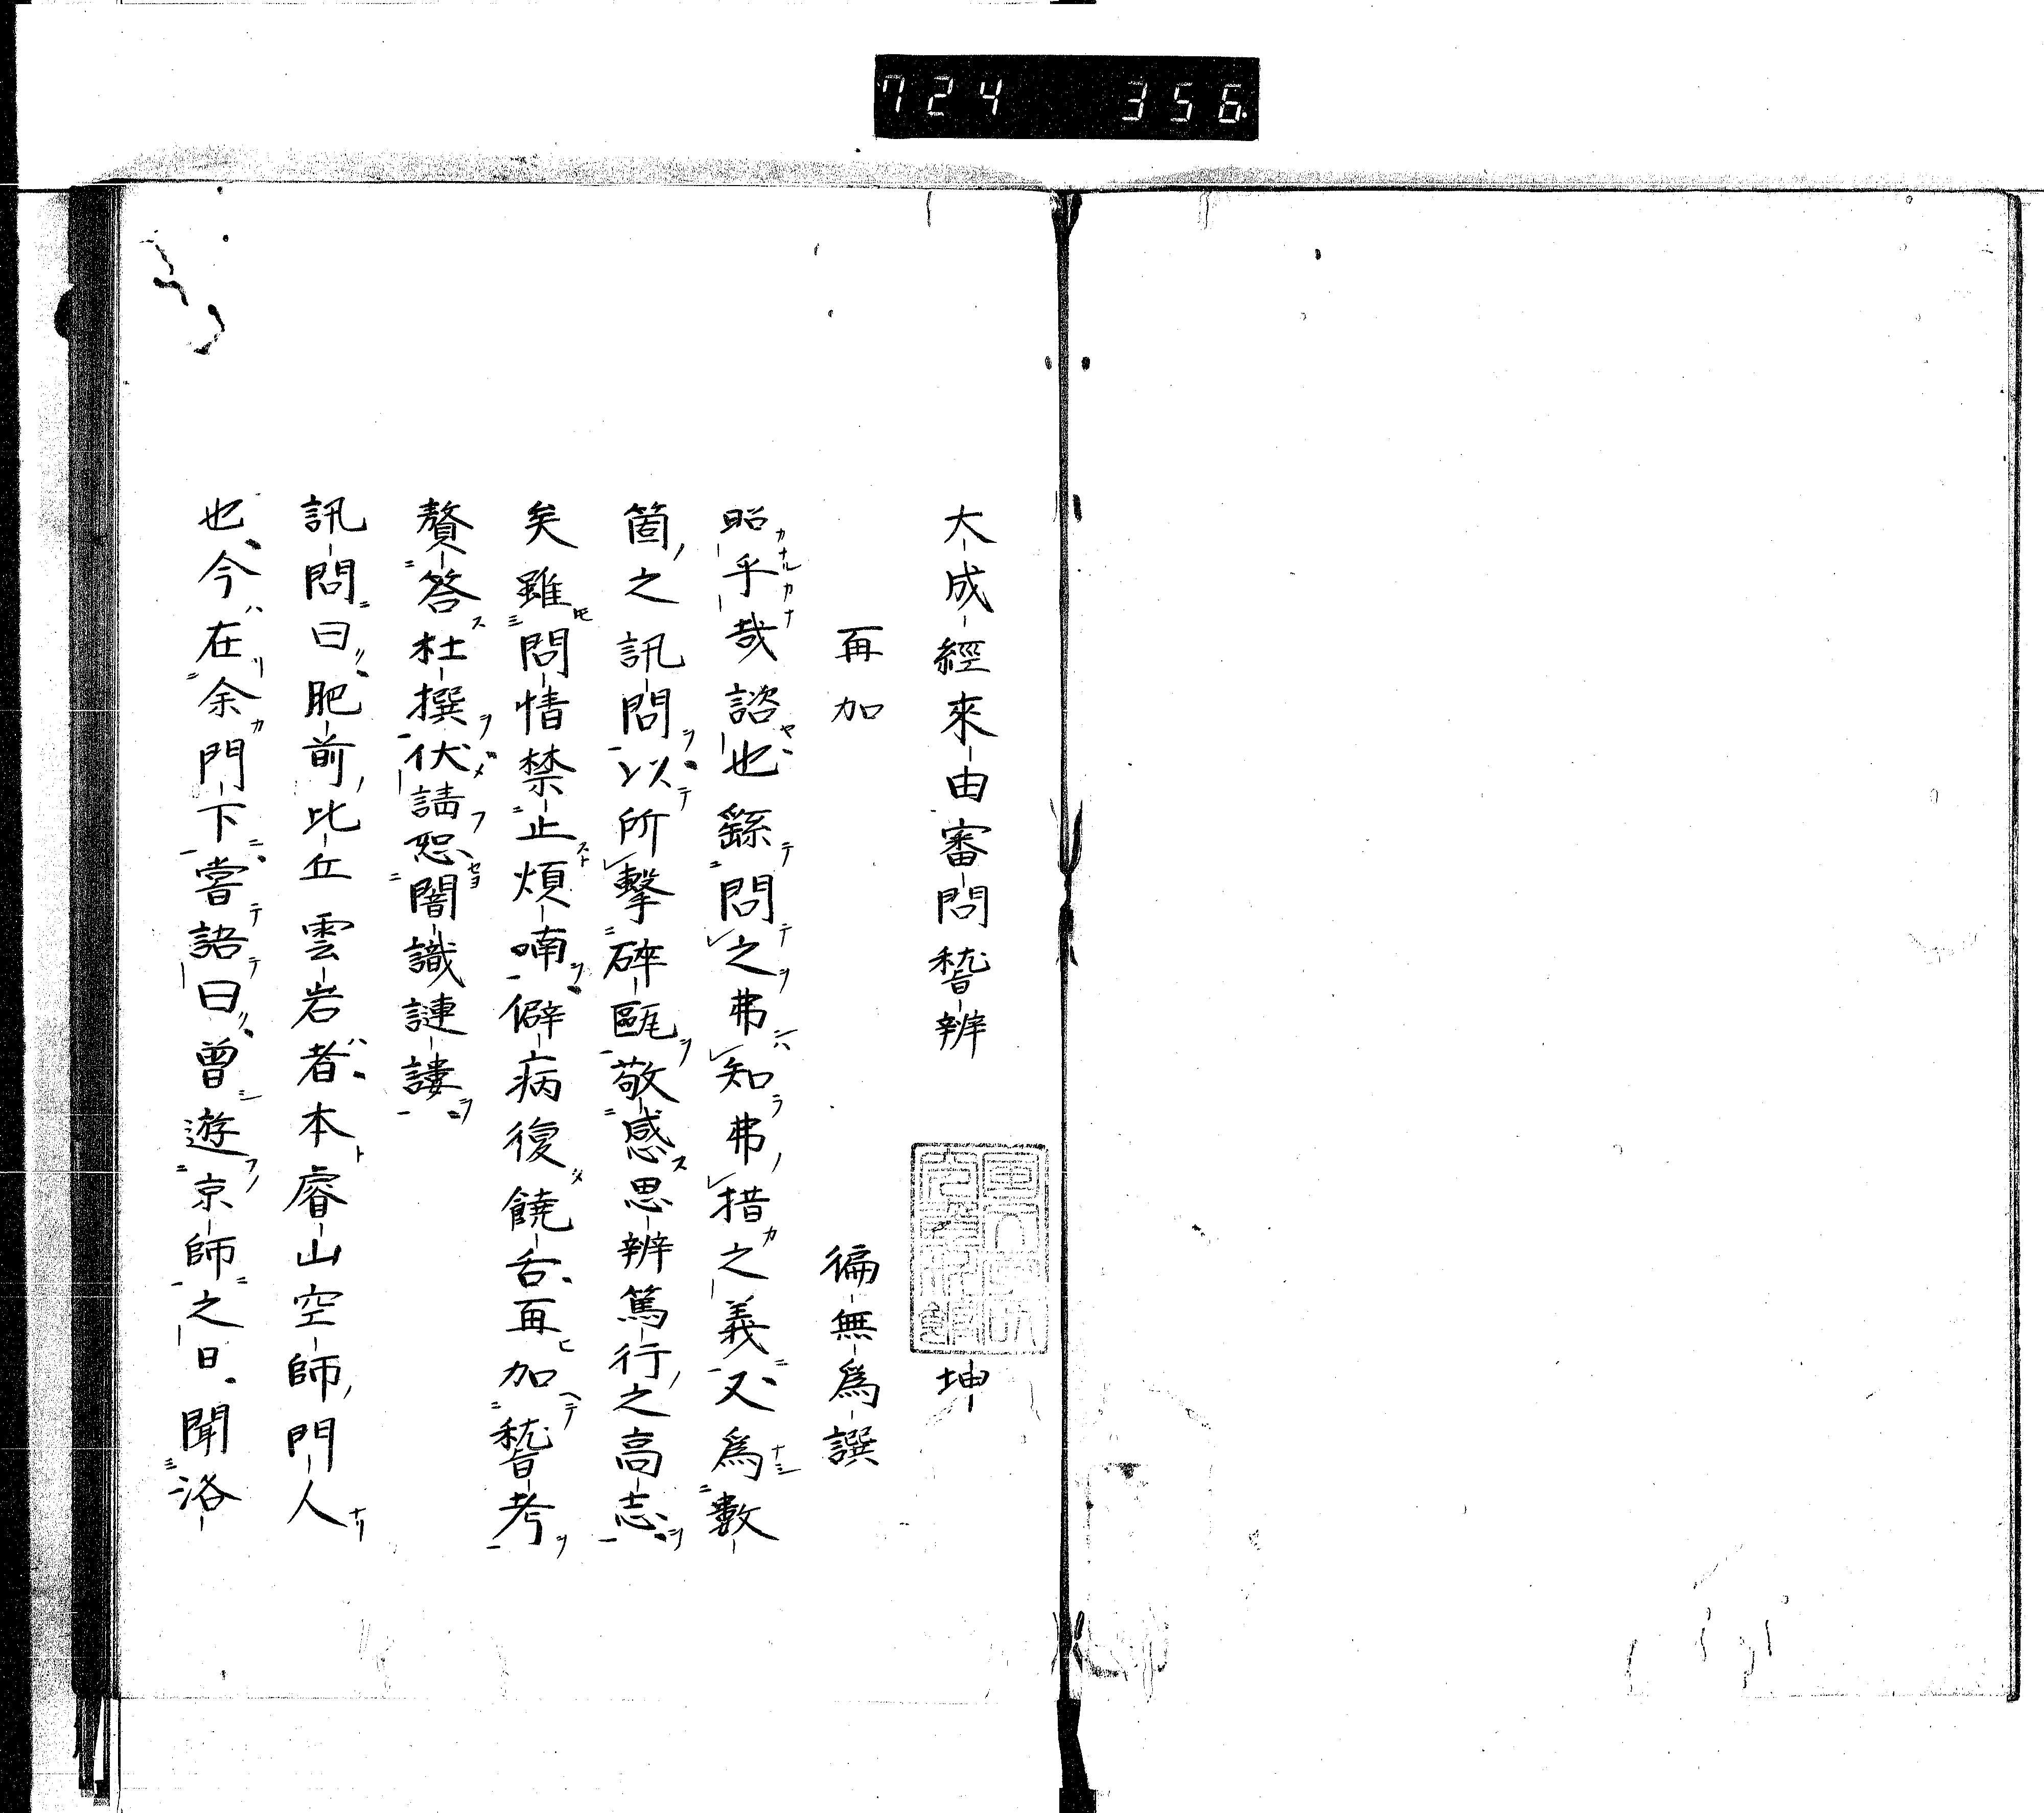 724 356
大成經來由審問稽辨 坤
再加 徧無爲譔
昭乎哉諮也繇問之弗知弗措之義又爲數
箇之訊問以所擊碎甌敬感思辨篤行之高志
矣雖問情禁止煩喃僻病復饒舌再加稽考
贅答杜撰伏請恕闇識謰謱
訊問曰肥前比丘雲岩者本睿山空師門人
也今在余門下嘗語曰曾遊京師之日聞洛